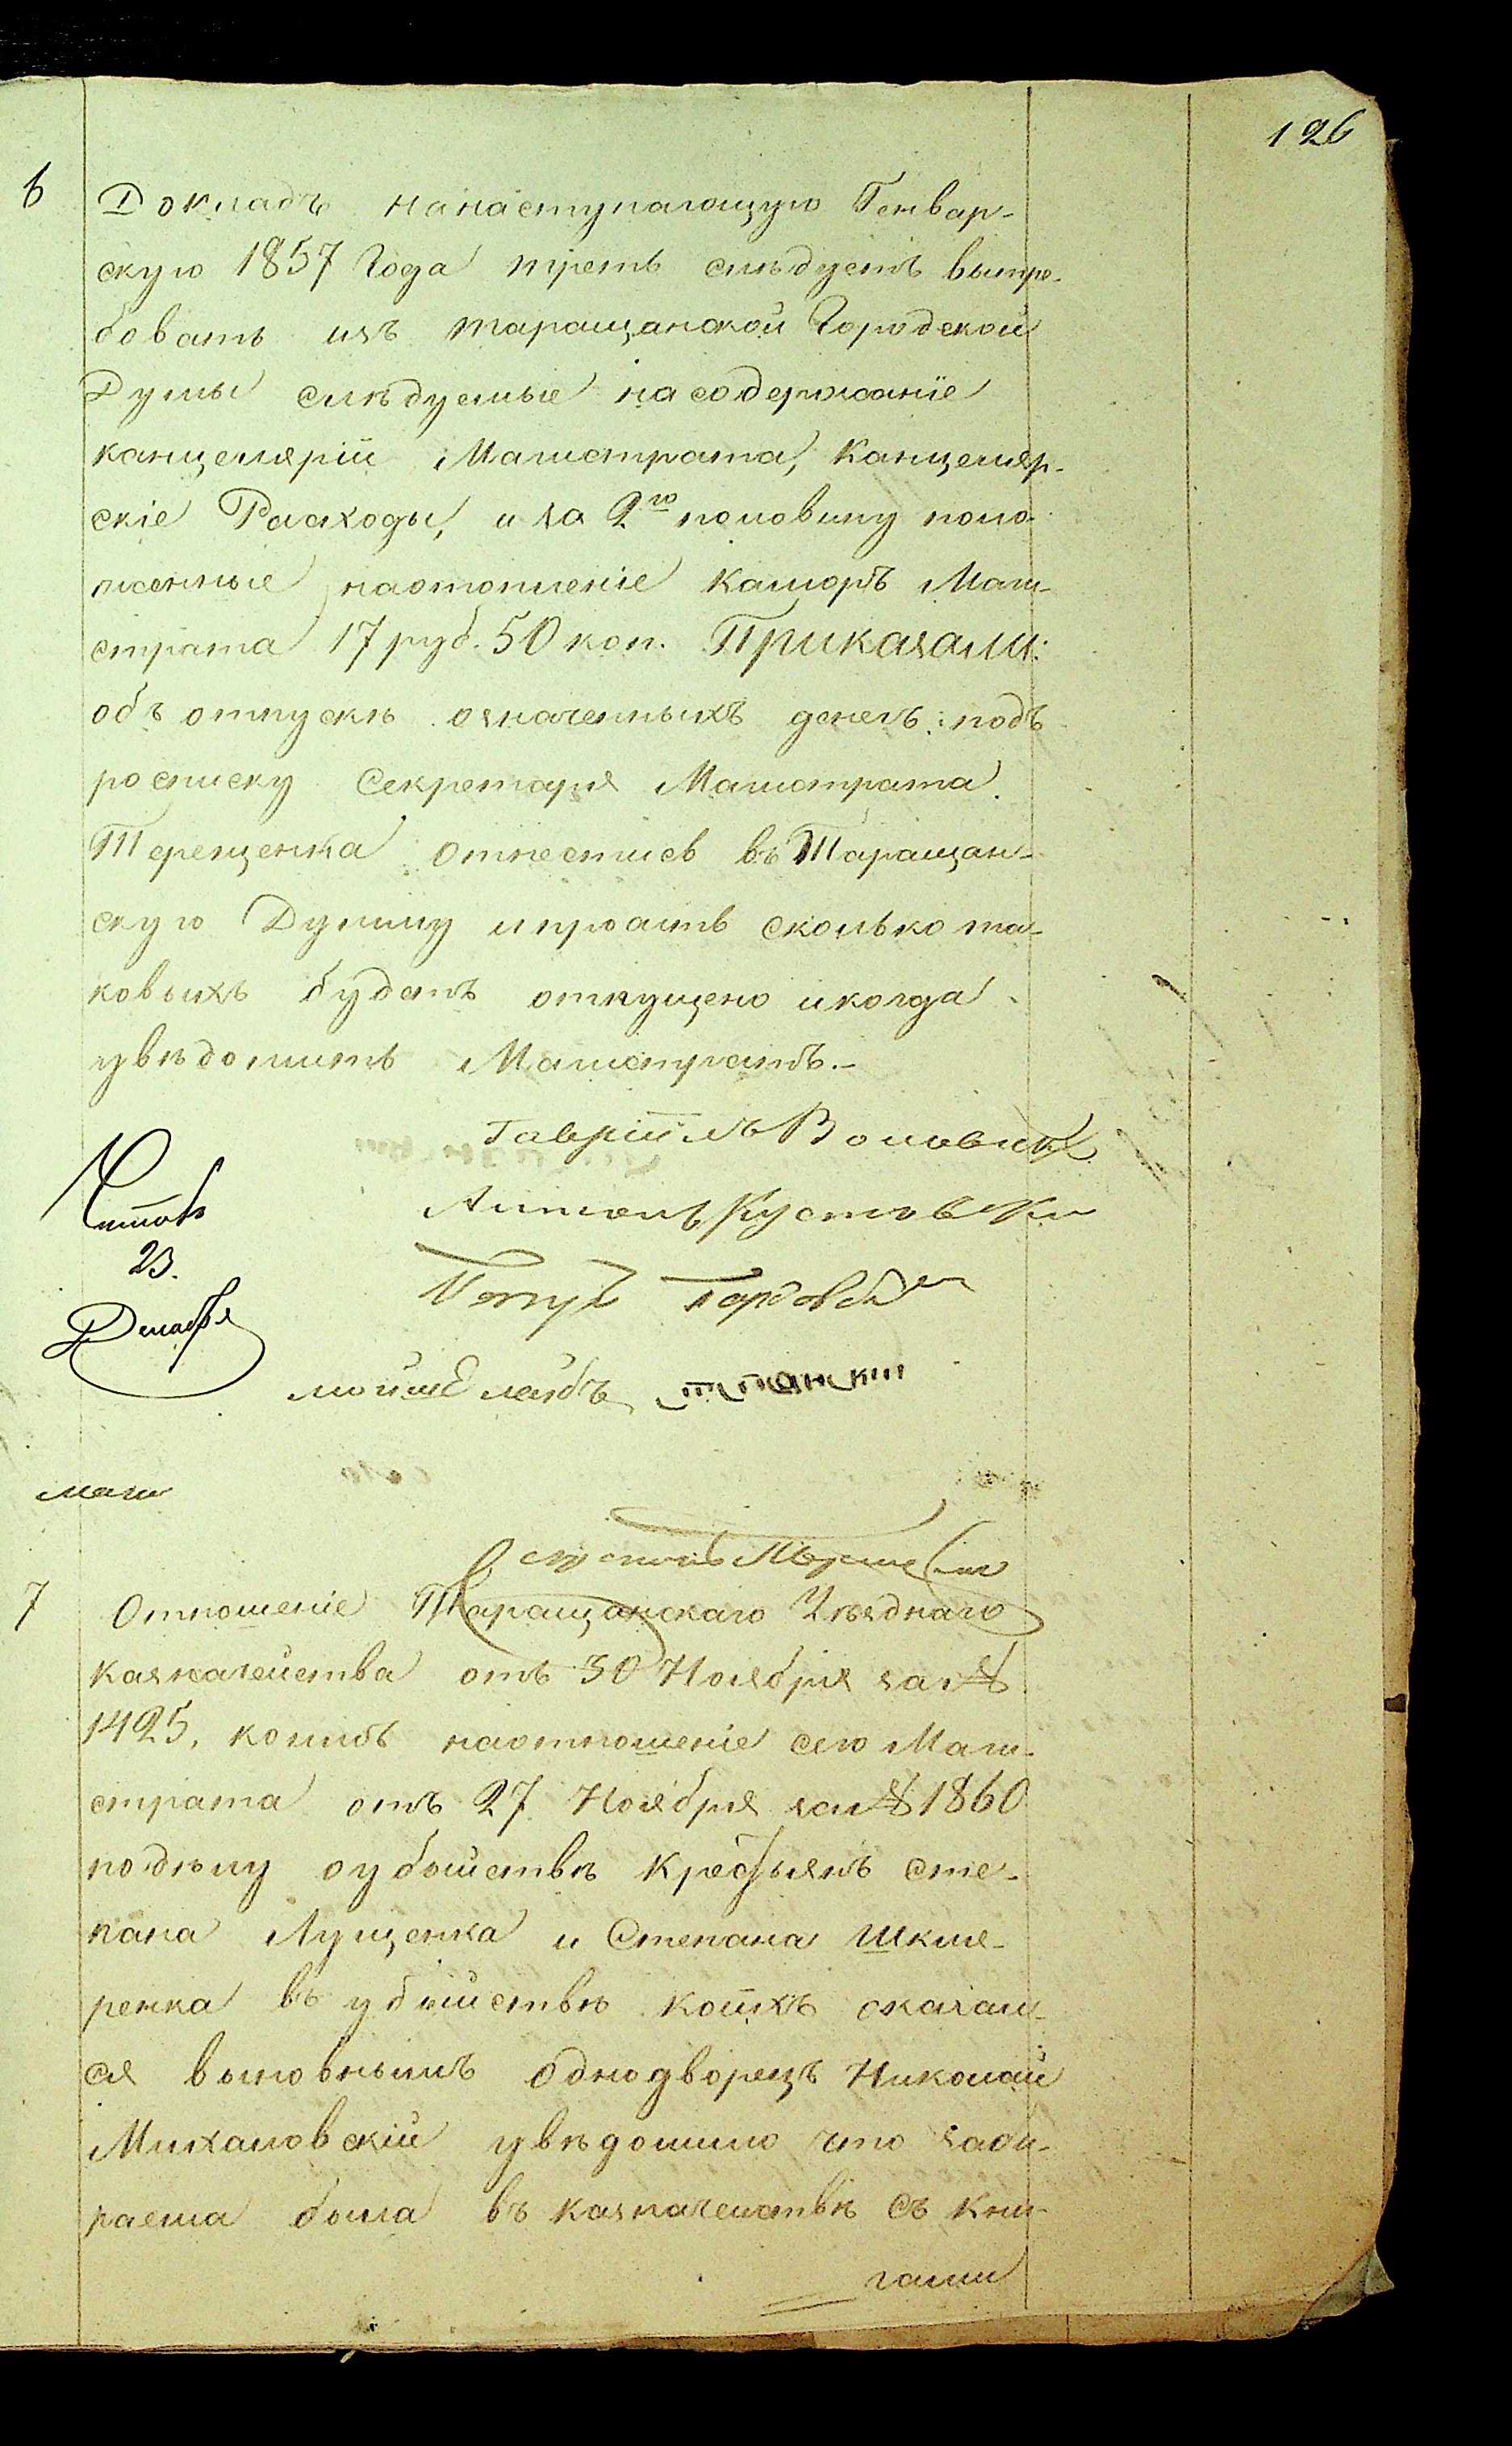 126
6
Докладъ нанаступающую Генвар-
скую 1857 Года треть слѣдуетъ вытре-
бовать изъ таращанской Городской
Думы слѣдуемые на содержаніе
канцеляріи Магистрата, Канцеляр-
скіе Расходы, и за 2ю половину поло-
женные наотопленіе каморъ Маги-
страта 17 руб. 50 коп. Приказали:
объ отпускѣ означенныхъ денегъ подъ
росписку Секретаря Магистрата
Терещенка отнестись въ Таращан-
скую Думму и просить сколько та-
ковыхъ будетъ отпущено и когда
увѣдомить Магистратъ.-
Гавріилъ
Антонъ Кустовски
Читалъ
23.
Декабря
мойше лейбъ
маги
7
Отношеніе Таращанскаго Уѣзднаго
казначейства отъ 30 Ноября за №
1425, коимъ наотношеніе сего Маги-
страта отъ 27 Ноября за № 1860
подѣлу оубійствѣ крестьянъ Сте-
пана Лущенка и Степана Шкля-
ренка въ убійствѣ коихъ оказал-
ся виновнымъ однодворецъ Николай
Михаловскій увѣдомило что заби-
раема была въ казначействѣ съ кни-
гами